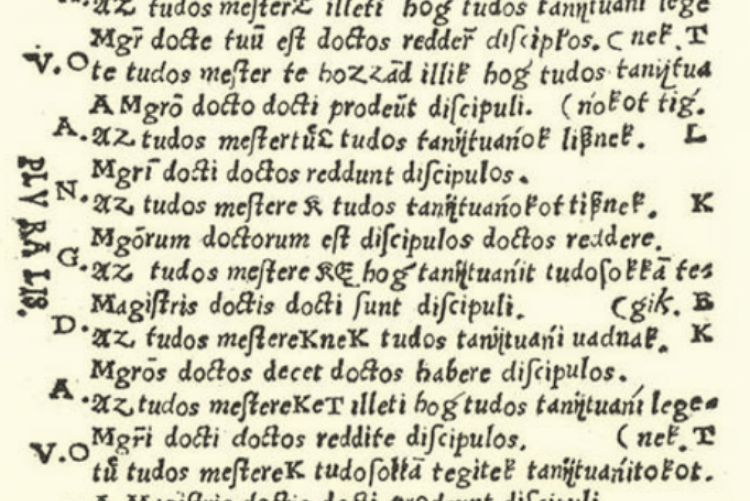 AZ tudos meſter illeti hog tudos taníjtuaní lege
Mgr̄ docte tuū eſt doctos redder̄ diſcipɫos. ( nek. T
V. O te tudos meſter te hoZZād illik hog tudos taníjtua
A Mgrō docto docti prodeūt diſcipuli. (ńokot tig.
A. AZ tudos meſtertűL tudos taníjtuańok lißnek. L
Mgrī docti doctos reddunt diſcipulos.
N. AZ tudos meſtere K tudos taníjtuańokot tißnek. K
PLVRALIS.
Mgōrum doctorum eſt diſcipulos doctos reddere.
G. AZ tudos meſtere KE hog taníjtuańit tudoſokkā tea
Magiſtris doctis docti ſunt diſcipuli. (gik. E
D. AZ tudos meſtereKneK tudos taníjtuańi uadnak. K
Mgrōs doctos decet doctos habere diſcipulos.
A. AZ tudos meſtereKeT illeti hog tudos taníjtuańí lege
Mgr̄i docti doctos reddite diſcipulos. ( nek. T
V. O tű tudos meſtereK tudoſokkā tegitek taníjtuańitokot.